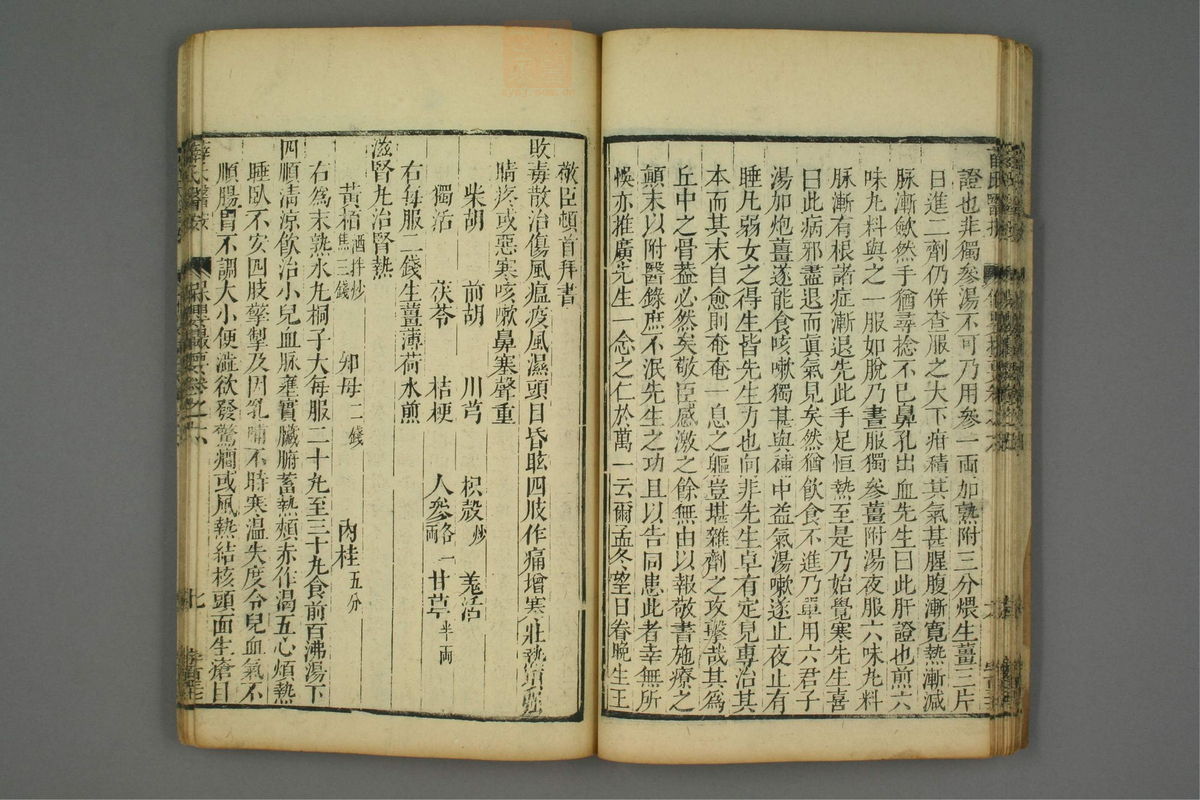 證也非獨參湯不可乃用參一兩加熟附三分煨生薑三片
日進二劑仍併查服之大下疳積其氣甚腥腹漸寬熱漸減
脉漸斂然手猶尋捻不已鼻孔出血先生曰此肝證也煎六
味丸料與之一服如脫乃晝服獨參薑附湯夜服六味丸料
脉漸有根諸症漸退先此手足恒熱至是乃始覺寒先生喜
曰此病邪盡退而眞氣見矣然猶飲食不進乃單用六君子
湯加炮薑遂能食咳嗽獨甚與補中益氣湯嗽遂止夜止有
睡凡弱女之得生皆先生力也向非先生卓有定見專治其
本而其末自愈則奄奄一息之軀豈堪雜劑之攻擊哉其爲
丘中之骨葢必然矣敬臣感激之餘無由以報敬書施療之
顛末以附醫錄庶不泯先生之功且以告同患此者幸無所
悞亦推廣先生一念之仁於萬一云爾孟冬望日眷晚生王
敬臣頓首拜書
敗毒散治傷風瘟疫風濕頭目昏眩四肢作痛增寒壯熱項強
睛疼或惡寒咳嗽鼻塞聲重
柴胡 前胡 川芎 枳殼炒 羌活
獨活 茯苓 桔梗 人參各一兩 甘草半兩
右每服二錢生薑薄荷水煎
滋腎丸治腎熱
黃栢酒拌炒焦三錢 知母二錢 肉桂五分
右爲末熟水丸桐子大每服二十丸至三十丸食前百沸湯下
四順清涼飲治小兒血脉壅實臟腑蓄熱頰赤作渴五心煩熱
睡臥不安四肢攣掣及因乳哺不時寒温失度令兒血氣不
順腸胃不調大小便澁欲發驚癇或風熱結核頭面生瘡目
薛氏醫按 保嬰撮要卷之六